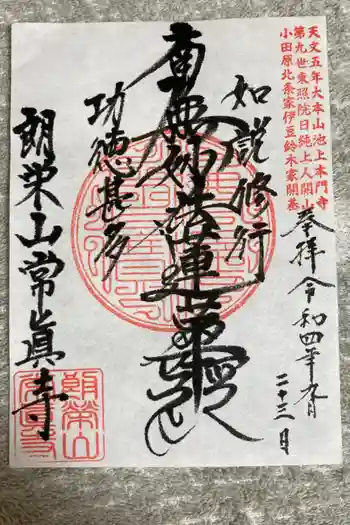 天文五年大本山池上本門寺
第九世東照院日純上人開山
小田原北条家伊豆鈴木家開基
奉拝 令和四年九月
二十三日
如説修行
南無妙法蓮華経
功徳甚多
朗栄山常眞寺